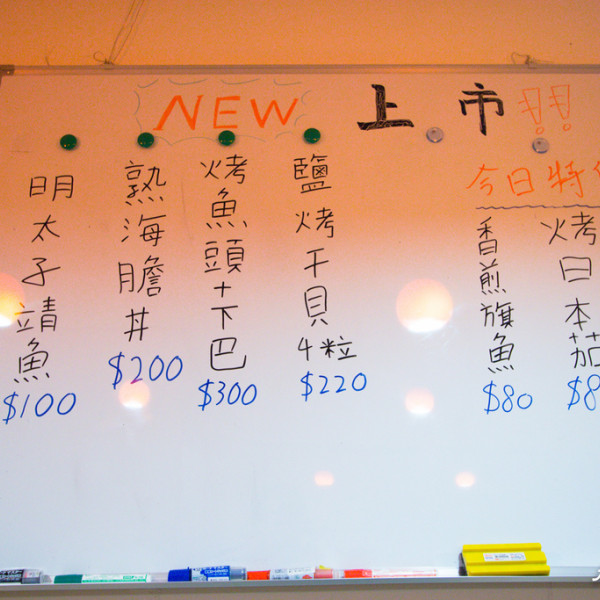 NEW 上市!!
今日特
烤日本茄
$8
香煎旗魚
$80
鹽烤干貝4粒
$220
烤魚頭+下巴
$300
熟海膽丼
$200
明太子靖魚
$100